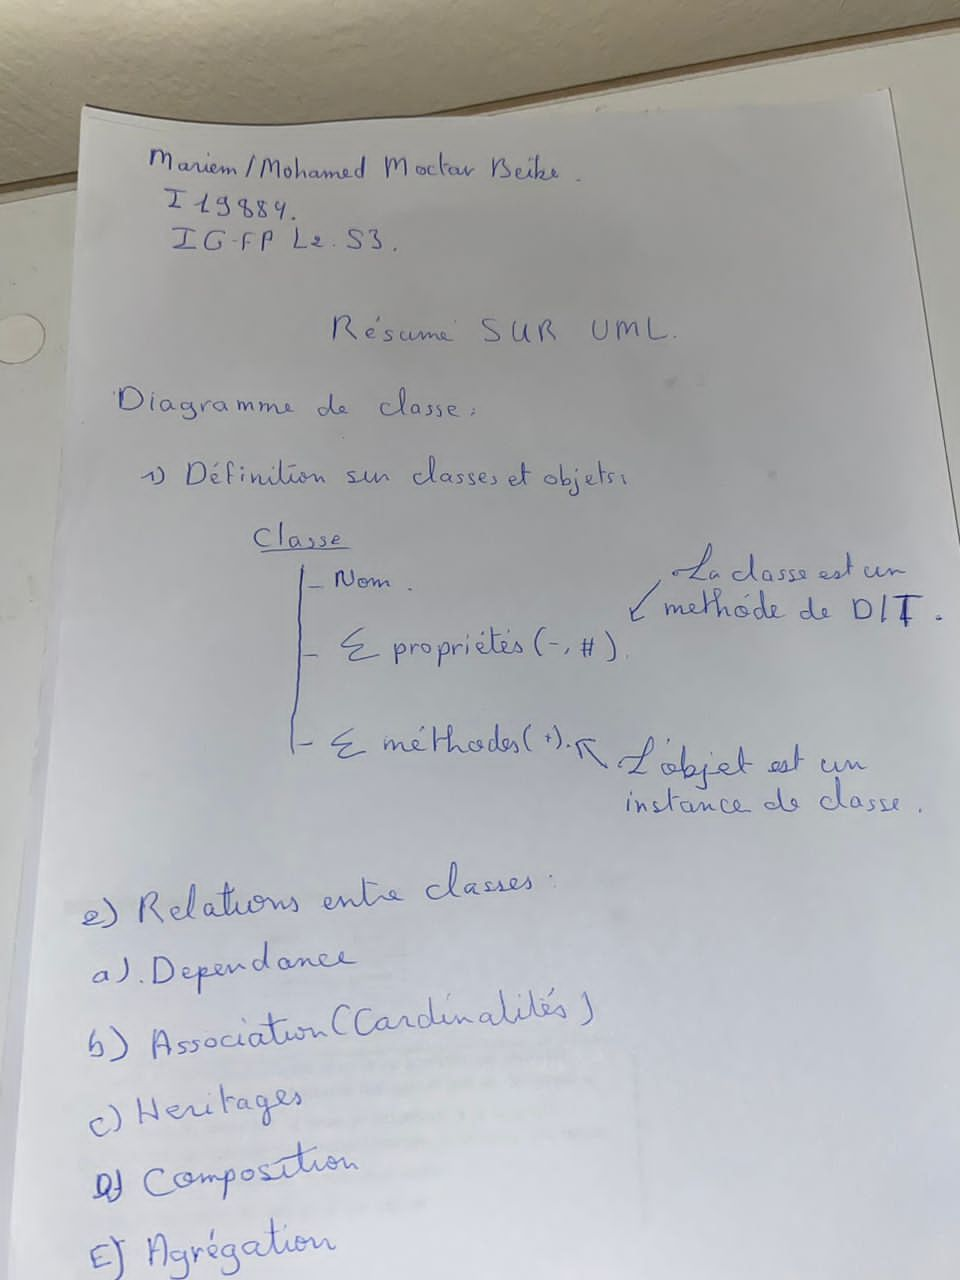 Mariem/Mohamed Moctar Beibe.
I19884.
IG-FP L2.S3.
Résumé SUR UML.
Diagramme de classe:
1) Définition sur classes et objets:
Classe
- Nom.
La classe est un
methóde de DIT.
- Σ propriétés (-, #).
- Σ méthodes (+).
L'objet est un
instance de classe.
2) Relations entre classes:
a). Dependance
b) Association (Cardinalités)
c) Heritages
D) Composition
E) Agrégation